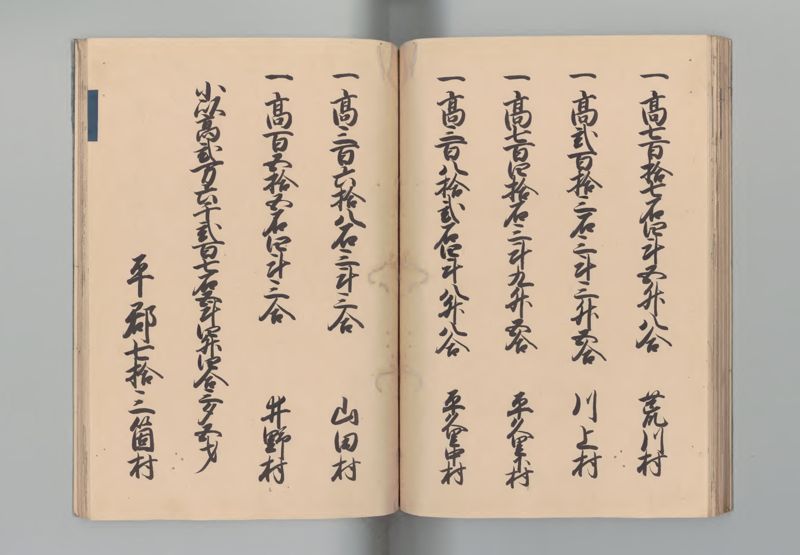 一 高七百拾七石四斗五升八合 荒川村
一 高弐百拾三石三斗三升五合 川上村
一 高七百四拾石二斗九升五合 平久里下村
一 高三百八拾弐石四斗八升八合 平久里中村
一 高三百六拾八石三斗三合 山田村
一 高百五拾五石四斗三合 井野村
小以高弐万六千弐百七石 四合
平郡七拾三箇村